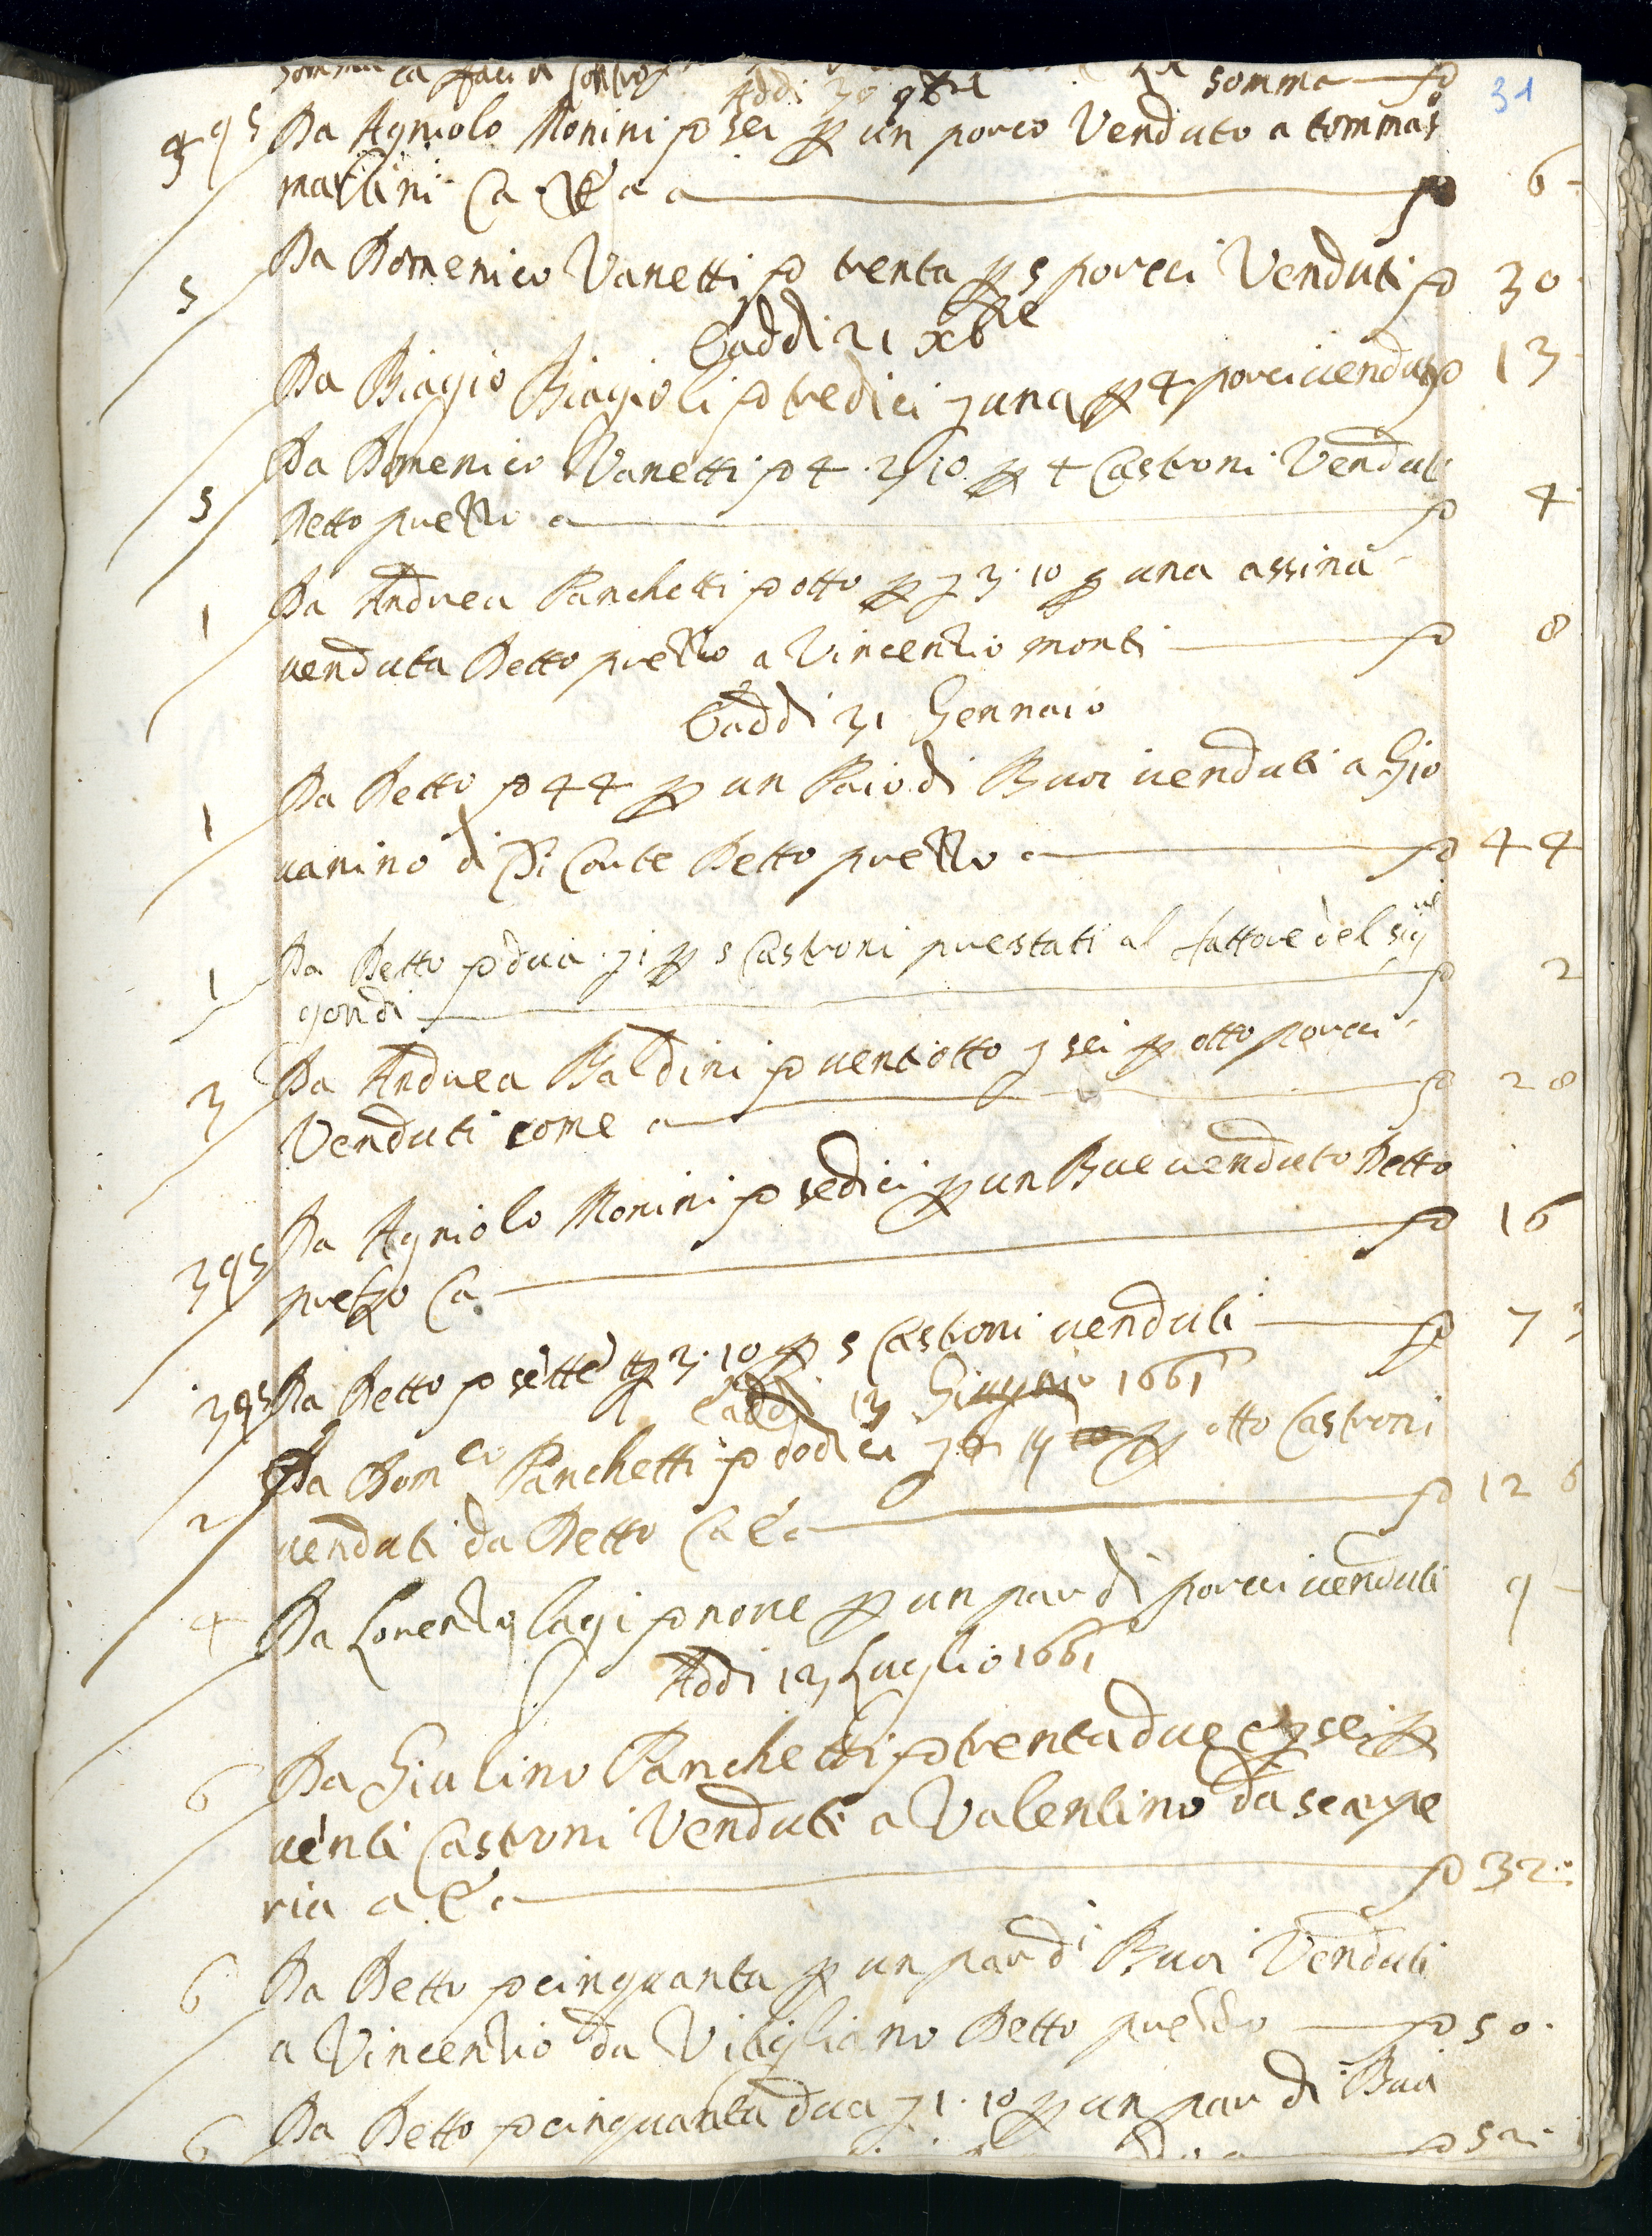 somma 31
Addi 30 9bre
395 Da Agniolo Monini sei p un porco Venduto a tommas
martini Ca 6
5 Da Domenico Vanetti trenta p 5 porcci Venduti 30
E addi 21 xbre
Da Biagio Biagioli tredici una p 4 porci venduti 13
Da Domenico Vanetti 4 . 2 10 p 4 Castroni Venduti
5 Detto prezzo 4
1 Da Andrea Panchetti otto p 3 . 10 p una assina
venduta Detto prezzo a Vincenzio monti 8
E addi 31 Gennaio
1 Da Detto 44 p un Paio di Buoi venduti a Gio
vanino di Corte Detto prezzo 44
1 Da Detto dua 1 p 5 Castroni prestati al fattore del sigre
gondi 2
3 Da Andrea Baldini ventiotto sei p otto porcci
Venduti come 28
Da Agniolo Monini sedici p un Bue venduto Detto
395 prezzo Ca 16
395 Da Detto sette 3 . 10 p 5 Castroni venduti 7 3
E addi 13 Giugnio 1661
Da Domco Panchetti dodici p otto Castroni
2 venduti da Detto 12 6
4 Da Lorenzo lagi nove p un par di porcci venduti 9
Addi 13 Luglio 1661
6 Da Giulino Panchetti trentadue e sei p
venti Castroni Venduti a Valentino da scarpe
ria 32
6 Da Detto cinquanta p un par di Buoi Venduti
a Vincenzio da Vitigliano Detto prezzo 50
6 Da Detto cinquanta dua 1 . 10 p un par di Buoi
52